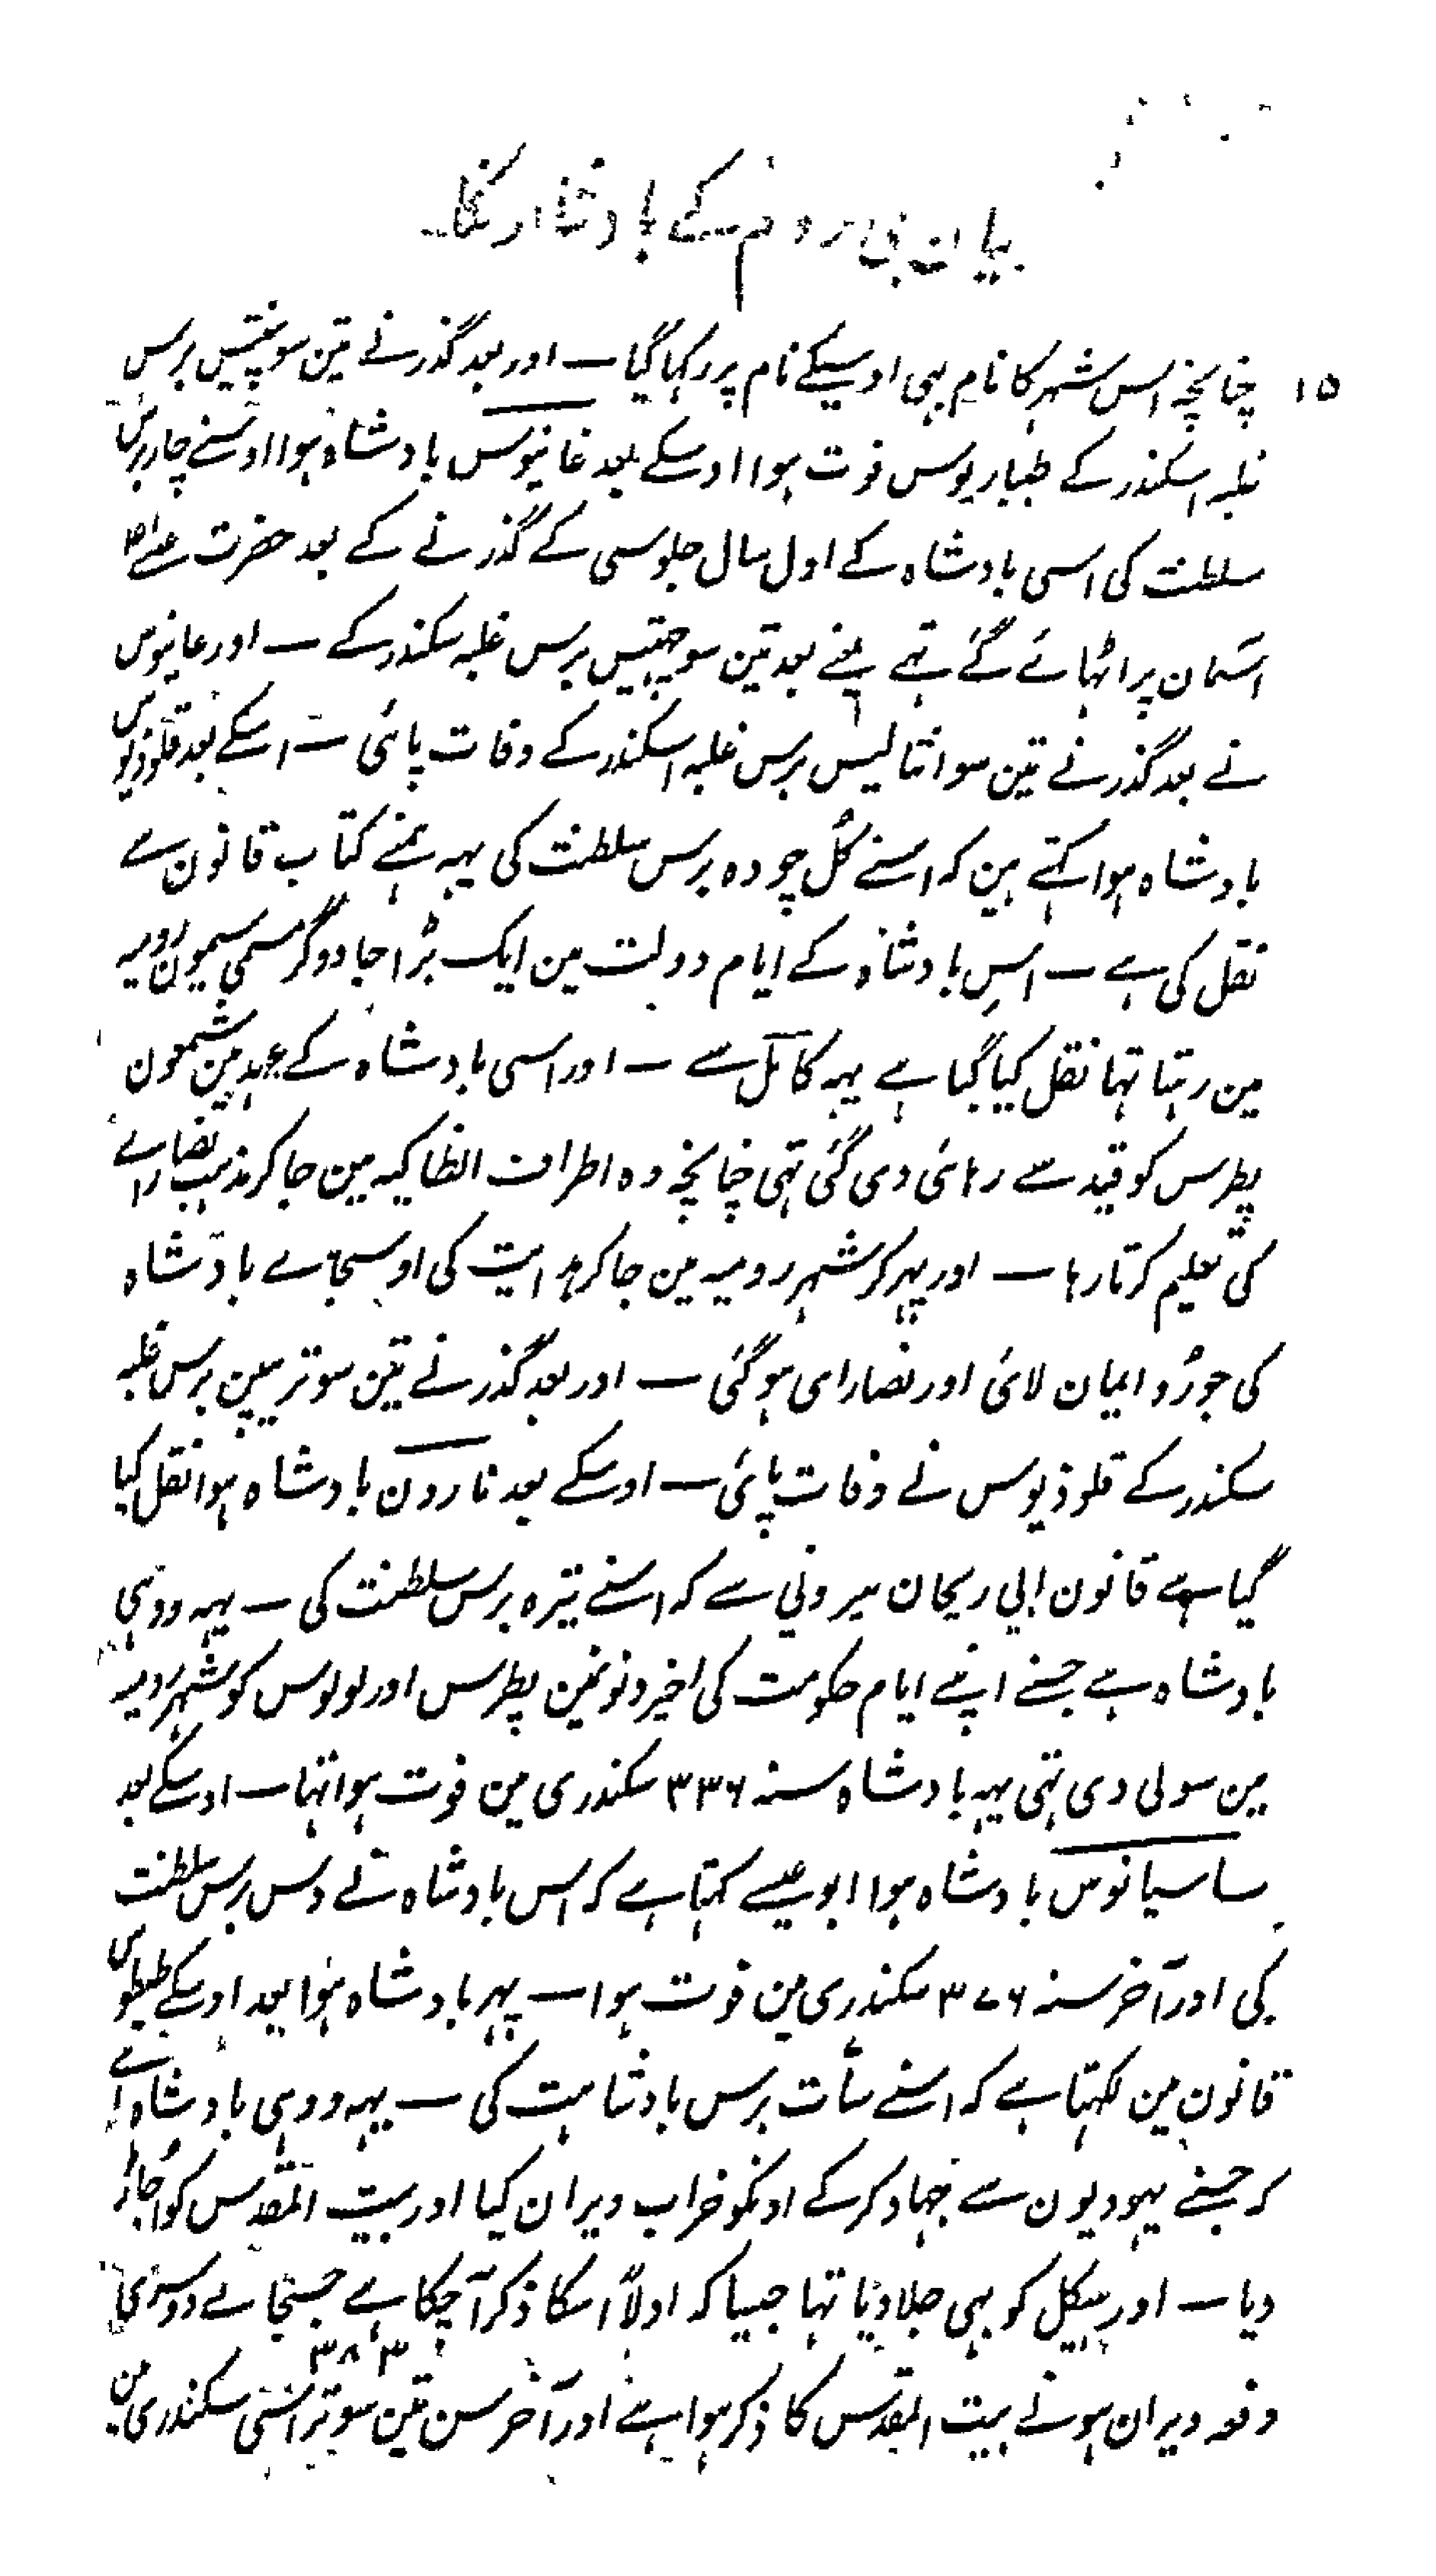 بیان بنی روم کے بادشاہونکا
۱۵ چنانچہ اس شہر کا نام بہی اوسیکے نام پر رکہا گیا — اور بعد گذرنے تین سو پنتیس برس
غلبہ اسکندر کے طیباریوس فوت ہوا اوسکے بعد غانیوس بادشاہ ہوا اوسنے چار برس
سلطنت کی اسی بادشاہ کے اول سال جلوسی کے گذرنے کے بعد حضرت عیسے
اسمان پر اٹہائے گئے تہے یعنے بعد تین سو چہتیس برس غلبہ سکندر کے — اور غانیوس
نے بعد گذرنے تین سو انتالیس برس غلبہ اسکندر کے وفات پائی — اسکے بعد قلوذیوس
بادشاہ ہوا کہتے ہین کہ اسنے کُل چودہ برس سلطنت کی یہہ ہمنے کتاب قانون سے
نقل کی ہے — اس بادشاہ کے ایام دولت مین ایک بڑا جادوگر مسمی سیمون رومیہ
مین رہتا تہا نقل کیا گیا ہے یہہ کامل سے — اور اسی بادشاہ کے عہد مین شمعون
پطرس کو قید سے رہائی دی گئی تہی چنانچہ وہ اطراف انطاکیہ مین جا کر مذہب نصارے
کی تعلیم کرتا رہا — اور پہر کر شہر رومیہ مین جا کر ہدایت کی اوسجاے بادشاہ
کی جورُو ایمان لائی اور نصارای ہو گئی — اور بعد گذرنے تین سو ترپین برس غلبہ
سکندر کے قلوذیوس نے وفات پائی — اوسکے بعد نارون بادشاہ ہوا نقل کیا
گیا ہے قانون ابی ریحان بیرونی سے کہ اسنے تیرہ برس سلطنت کی — یہہ ووہی
بادشاہ ہے جسنے اپنے ایام حکومت کی اخیر دنونمین پطرس اور بولوس کو شہر رومیہ
مین سولی دی تہی یہہ بادشاہ سنہ ۳۳۶ سکندری مین فوت ہوا تہا — اوسکے بعد
ساسیانوس بادشاہ ہوا ابو عیسے کہتا ہے کہ اس بادشاہ نے دس برس سلطنت
کی اور آخر سنہ ۳۷۶ سکندری مین فوت ہوا — پہر بادشاہ ہوا بعد اوسکے طیطوس
قانون مین لکہتا ہے کہ اسنے سات برس بادشاہت کی — یہہ ووہی بادشاہ ہے
کہ جسنے یہودیون سے جہاد کر کے اونکو خراب ویران کیا اور بیت المقدس کو اجاڑ
دیا — اور ہیکل کو بہی جلا دیا تہا جیسا کہ اولاً اسکا ذکر آ چکا ہے جسجاے دوسری
۳۸۳
دفعہ ویران ہونے بیت المقدس کا ذکر ہوا ہے اور آخر سن تین سو تراسی سکندری مین